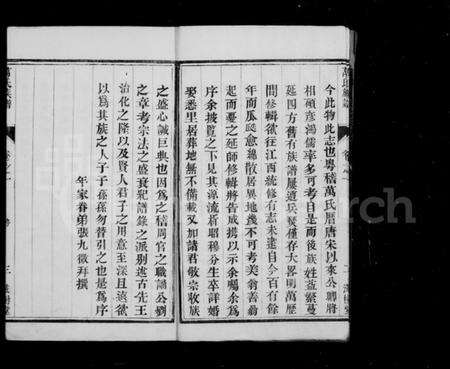 今此物此志也粵稽萬氏歷唐宋以來公卿將
相碩彥鴻儒率多可考自是而後族姓益繁蔓
延四方舊有族譜屢遭兵燹僅存大畧明萬歷
間修輯欲往江西統修有志未逮自今百有餘
年而瓜瓞愈綿散居異地幾不可考美翁善翁
起而憂之延師修輯將告成攜以示余囑余為
序余披覽之下見其源流新昭穆分生卒詳婚
娶悉里居葬地無不備載又加諸君敬宗收族
之盛心誠巨典也因為之稽周官之職誦公劉
之章考宗法之盛衰紀譜錄之派別述古先王
治化之隆以及賢人君子之用意至深且遠欲
以為其族之人子子孫孫勿替引之也是為序
年家眷弟張九徵拜撰